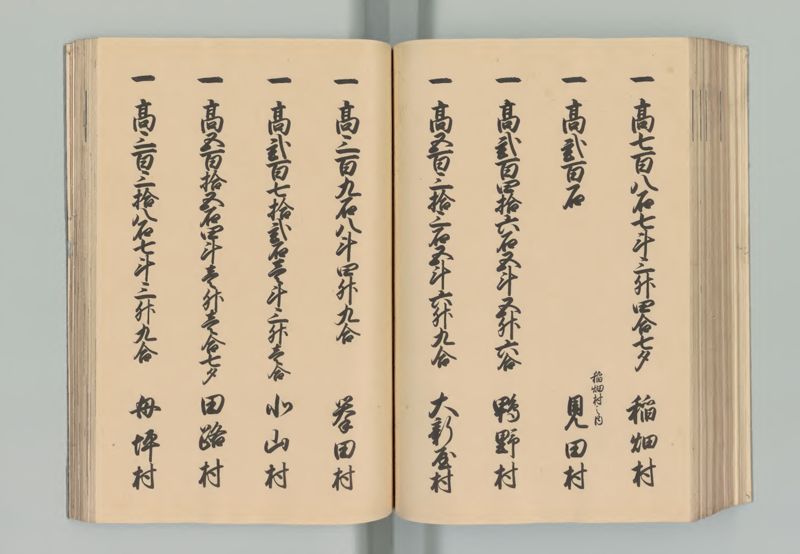 一 高七百八石七斗三升四合七夕 稲畑村
一 高弐百石 稲畑村之内 見田村
一 高弐百四拾六石五斗五升六合 鴨野村
一 高五百三拾三石五斗六升九合 大新屋村
一 高三百九石八斗四升九合 挙田村
一 高弐百七拾弐石壱斗三升壱合 小山村
一 高五百拾五石四斗壱升壱合七夕 田路村
一 高三百三拾八石七斗三升九合 母坪村